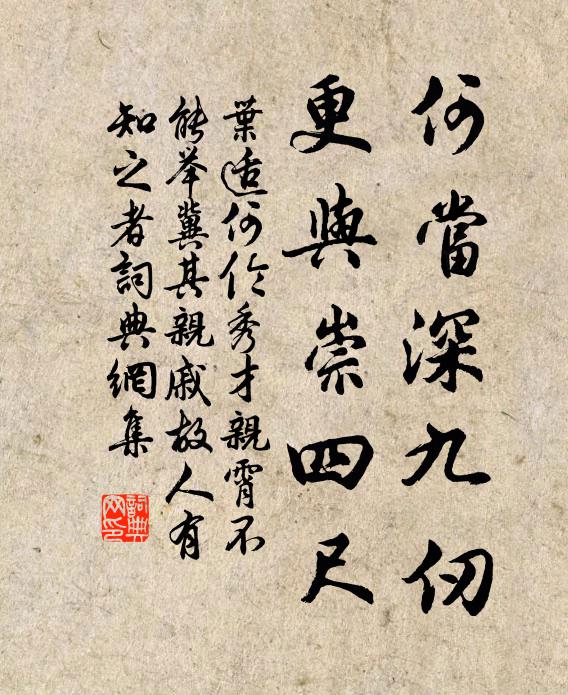 何當深九仞
更與崇四尺
葉适何伶秀才親霄不
能举冀其親戚故人有
知之者詞典網集
詞典网印